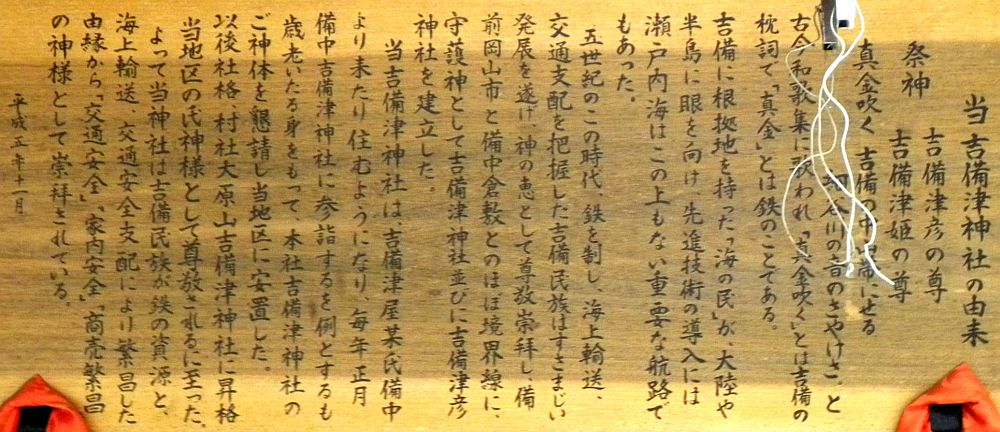 当吉備津神社の由来
吉備津彦の尊
祭神 吉備津姫の尊
真金吹く 吉備の中山帯にせる
細谷川の音のさやけさ、と
古今和歌集に歌われ「真金吹く」とは吉備の
枕詞で「真金」とは鉄のことである。
吉備に根拠地を持った「海の民」が、大陸や
半島に眼を向け、先進技術の導入には
瀬戸内海はこの上もない重要な航路で
もあった。
五世紀のこの時代、鉄を制し、海上輸送、
交通支配を把握した吉備民族はすさまじい
発展を遂げ、神の恵として尊敬崇拝し備
前岡山市と備中倉敷とのほぼ境界線に、
守護神として吉備津神社並びに吉備津彦
神社を建立した。
当吉備津神社は吉備津屋某氏備中
より来たり住むようになり、毎年正月
備中吉備津神社に参詣するを例とするも
歳老いたる身をもって、本社吉備津神社の
ご神体を懇請し当地区に安置した。
以後社格、村社大原山吉備津神社に昇格
当地区の氏神様として尊敬されるに至った。
よって当神社は吉備民族が鉄の資源と、
海上輸送、交通安全支配により繁昌した
由縁から「交通安全」、「家内安全」「商売繁昌
の神様として崇拝されている。
平成五年十一月